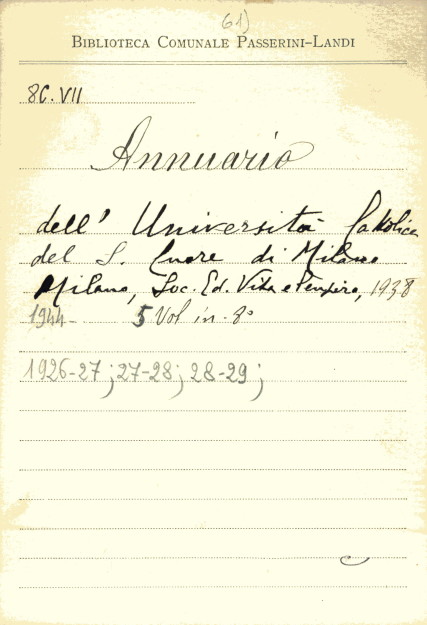 61)
BIBLIOTECA COMUNALE PASSERINI-LANDI
8C.VII
Annuario
dell' Università Cattolica
del S. Cuore di Milano
Milano, Soc. Ed. Vita e Pensiero, 1938
1944- 5 Vol in-8°
1926-27; 27-28; 28-29;